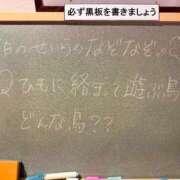 必ず黒板を書きましょう
今日のせいらのなぞなぞ
Q ひもに経って遊ぶ鳥
どんな鳥??